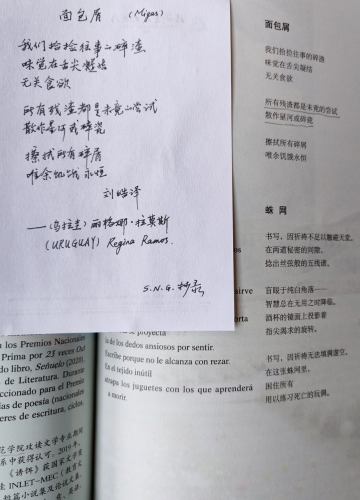 面包屑 (Migas)
我们拾捡往事的碎渣
味觉在舌尖凝结
无关食欲
所有残渣都是未竟的尝试
散作星河或碎瓷
擦拭所有碎屑
唯余饥饿永恒
刘皓译
——(乌拉圭) 丽格娜·拉莫斯
(URUGUAY) Regina Ramos.
S.N.G. 抄录
面包屑
我们拾捡往事的碎渣
味觉在舌尖凝结
无关食欲
所有残渣都是未竟的尝试
散作星河或碎瓷
擦拭所有碎屑
唯余饥饿永恒
蛛网
书写，因祈祷不足以触碰天堂。
在两道秘密的间隙，
捻出丝弦般的五线谱。
盲眼于纯白角落——
智慧总在无用之时降临。
酒杯的镜面上投影着
指尖渴求的旋转。
书写，因祈祷无法填满虚空。
在这张蛛网里，
困住所有
用以练习死亡的玩偶。
sirve
proyecta
a de los dedos ansiosos por sentir.
Escribe porque no le alcanza con rezar.
En el tejido inútil
atrapa los juguetes con los que aprenderá
a morir.
en los Premios Nacional
Prima por 23 veces Out
do libro, Señuelo (2020),
de Literatura. Durante
eccionado para el Premio
las de poesía (nacionales
eres de escritura, ciclos.
范学院攻读文学专业期间
系中获得认可。2019年，
《诱饵》获国家文学奖
INLET-MEC（教育文